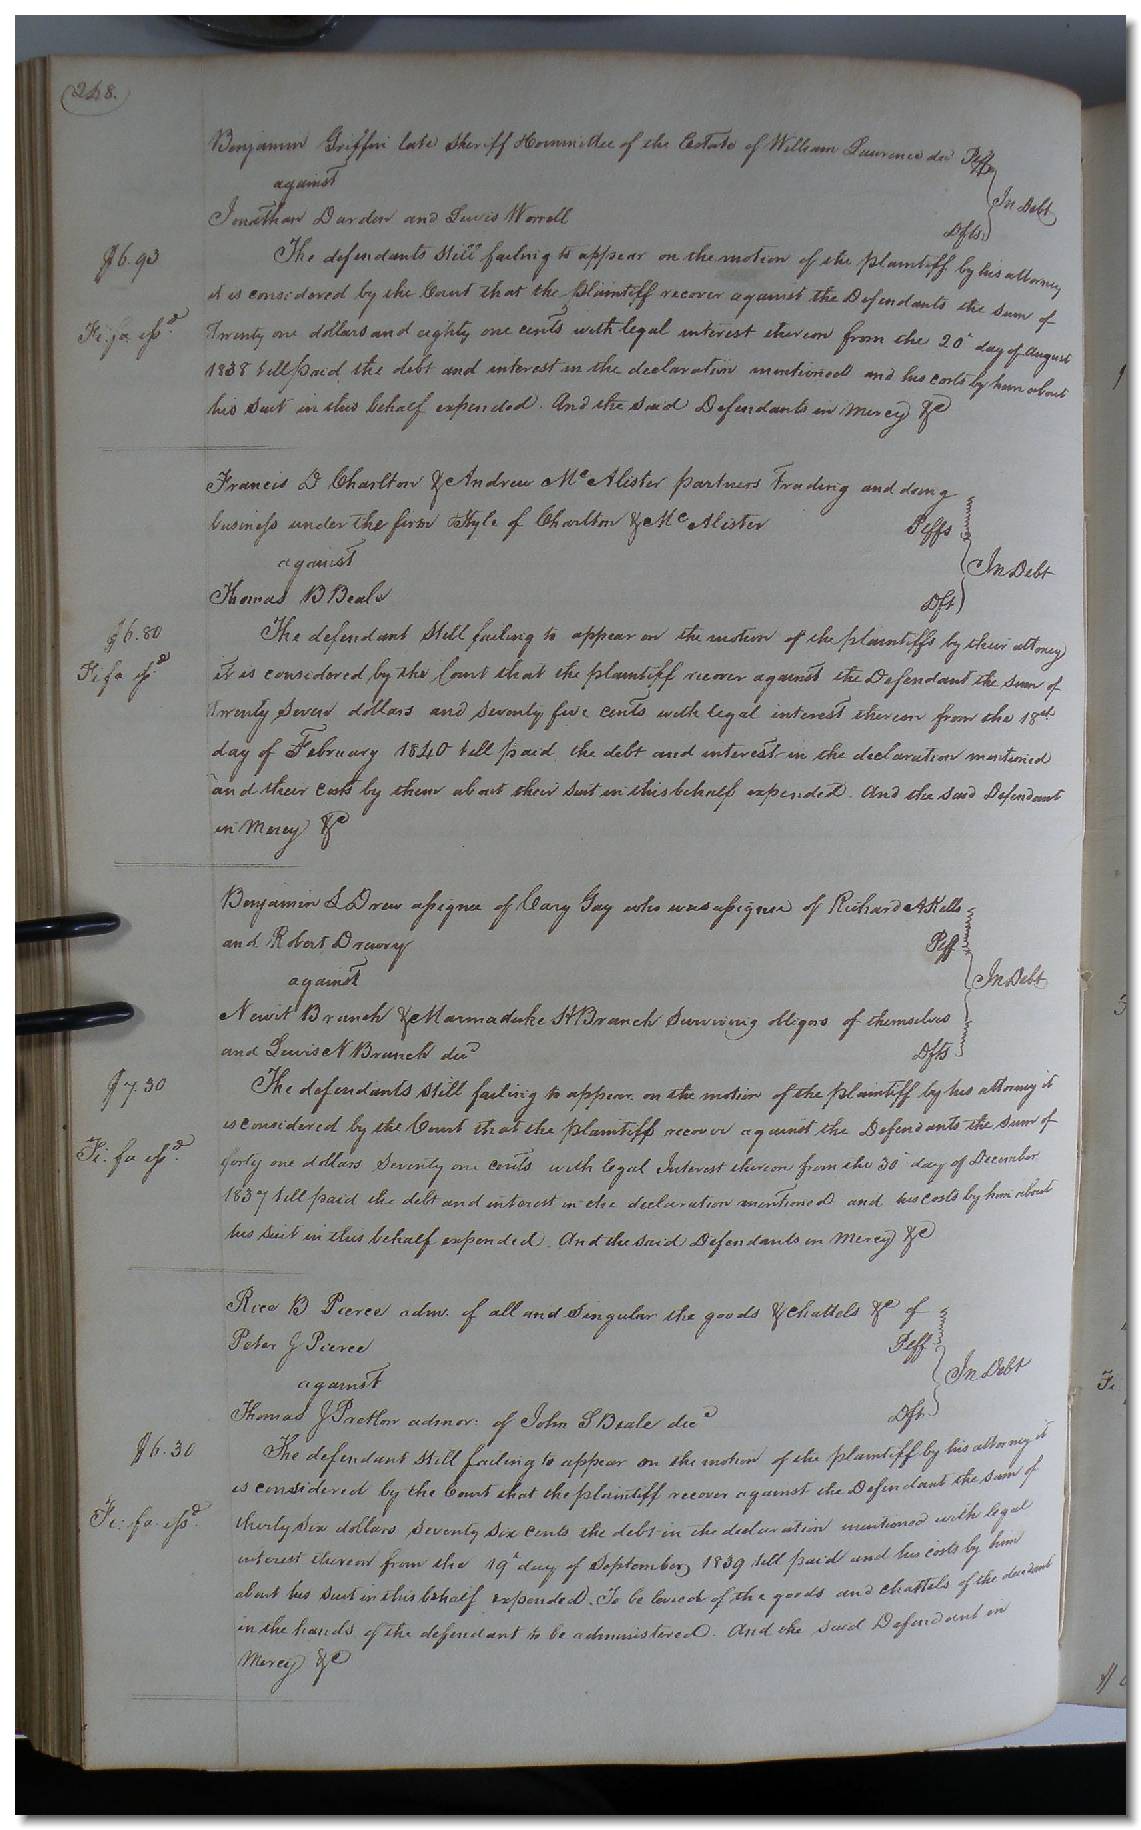 248.
Benjamin Griffin late Sheriff Committee of the Estate of William Lawrence dec Plff
against
In Debt
Jonathan Darden and Lewis Worrell
Dfts.
$6.93
The defendants still failing to appear on the motion of the plaintiff by his attorney
it is considered by the Court that the plaintiff recover against the Defendants the sum of
Fi: fa issd.
Twenty one dollars and eighty one cents with legal interest thereon from the 20th day of August
1838 till paid the debt and interest in the declaration mentioned and his costs by him about
his suit in this behalf expended. And the said Defendants in Mercy &c
Francis D Charlton & Andrew Mc Alister partners trading and doing
business under the firm Style of Charlton & Mc Alister
Plffs
against
In Debt
Thomas B Beale
Dft
$6.80
The defendant still failing to appear on the motion of the plaintiffs by their attorney
Fi fa issd.
it is considered by the Court that the plaintiff recover against the Defendant the sum of
Twenty Seven dollars and seventy five cents with legal interest thereon from the 18th
day of February 1840 till paid the debt and interest in the declaration mentioned
and their costs by them about their suit in this behalf expended. And the said Defendant
in Mercy &c
Benjamin S Drew assignee of Cary Gay who was assignee of Richard A Kello
and Robert Drewry
Plff
against
In Debt
Newit Branch & Marmaduke H Branch Surviving obligors of themselves
and Lewis N Branch decd
Dfts
$7.30
The defendants still failing to appear on the motion of the plaintiff by his attorney it
is considered by the Court that the plaintiff recover against the Defendants the sum of
Fi: fa issd.
forty one dollars Seventy one cents with legal Interest thereon from the 30th day of December
1837 till paid the debt and interest in the declaration mentioned and his costs by him about
his suit in this behalf expended. And the said Defendants in Mercy &c
Rice B Pierce adm. of all and Singular the goods & chattels &c of
Peter J Pierce
Plff
against
In Debt
Thomas J Pretlow admor: of John S Beale decd
Dft.
$6.30
The defendant still failing to appear on the motion of the plaintiff by his attorney it
is considered by the Court that the plaintiff recover against the Defendant the sum of
Fi: fa issd.
thirty six dollars seventy six cents the debt in the declaration mentioned with legal
interest thereon from the 19th day of September 1839 till paid and his costs by him
about his suit in this behalf expended. To be levied of the goods and chattels of the decedent
in the hands of the defendant to be administered. And the said Defendant in
Mercy &c